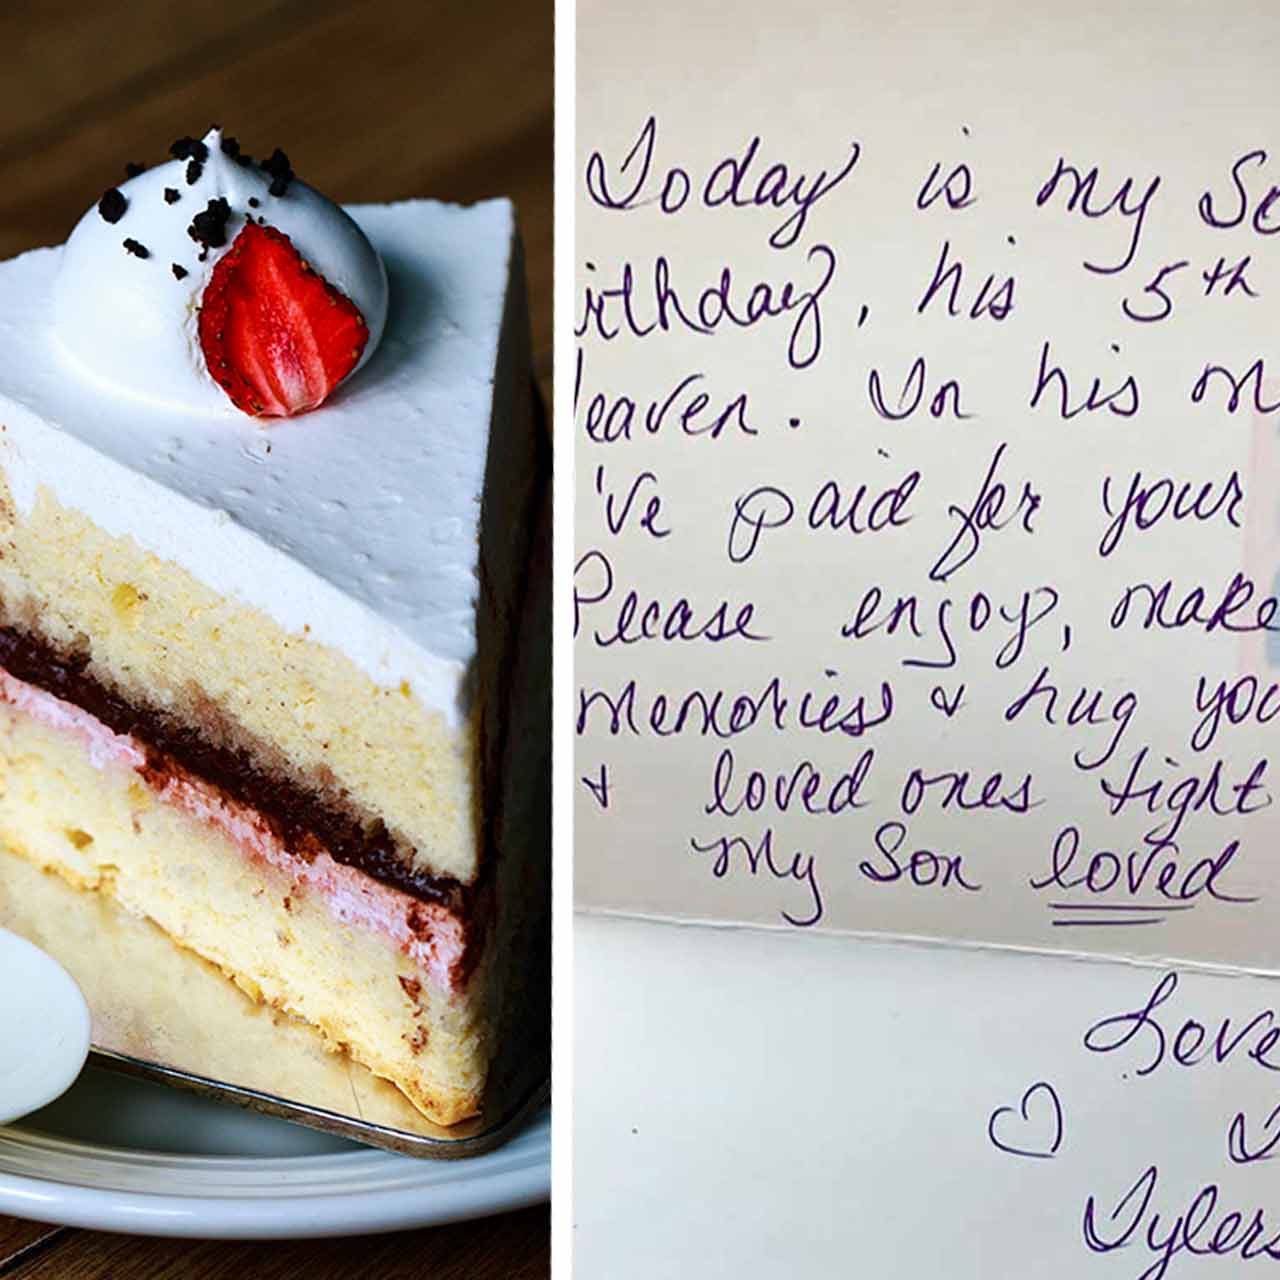 Today is my So
irthday, his 5th
eaven. In his m
've paid for your
Please enjoy, make
memories & hug you
& loved ones tight
My Son loved
Love
Tylers